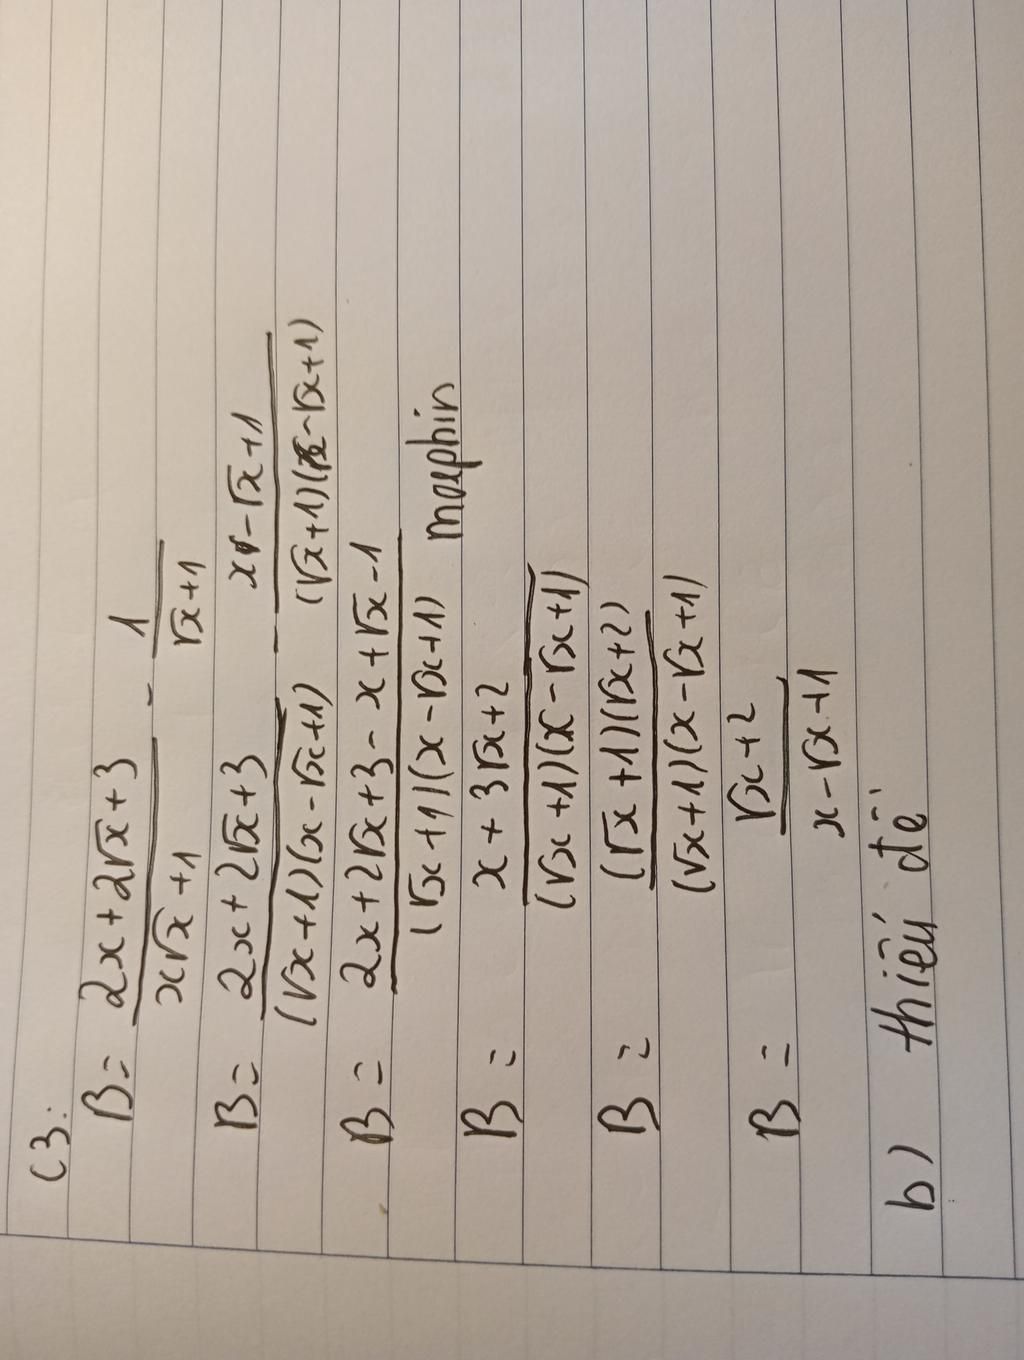 C3:
B = (2x+2√x+3)/(x√x+1) - 1/(√x+1)
B = (2x+2√x+3)/((√x+1)(x-√x+1)) - (x-√x+1)/((√x+1)(x-√x+1))
B = (2x+2√x+3-x+√x-1)/((√x+1)(x-√x+1))
morphin
B = (x+3√x+2)/((√x+1)(x-√x+1))
B = ((√x+1)(√x+2))/((√x+1)(x-√x+1))
B = (√x+2)/(x-√x+1)
b) thiếu đề